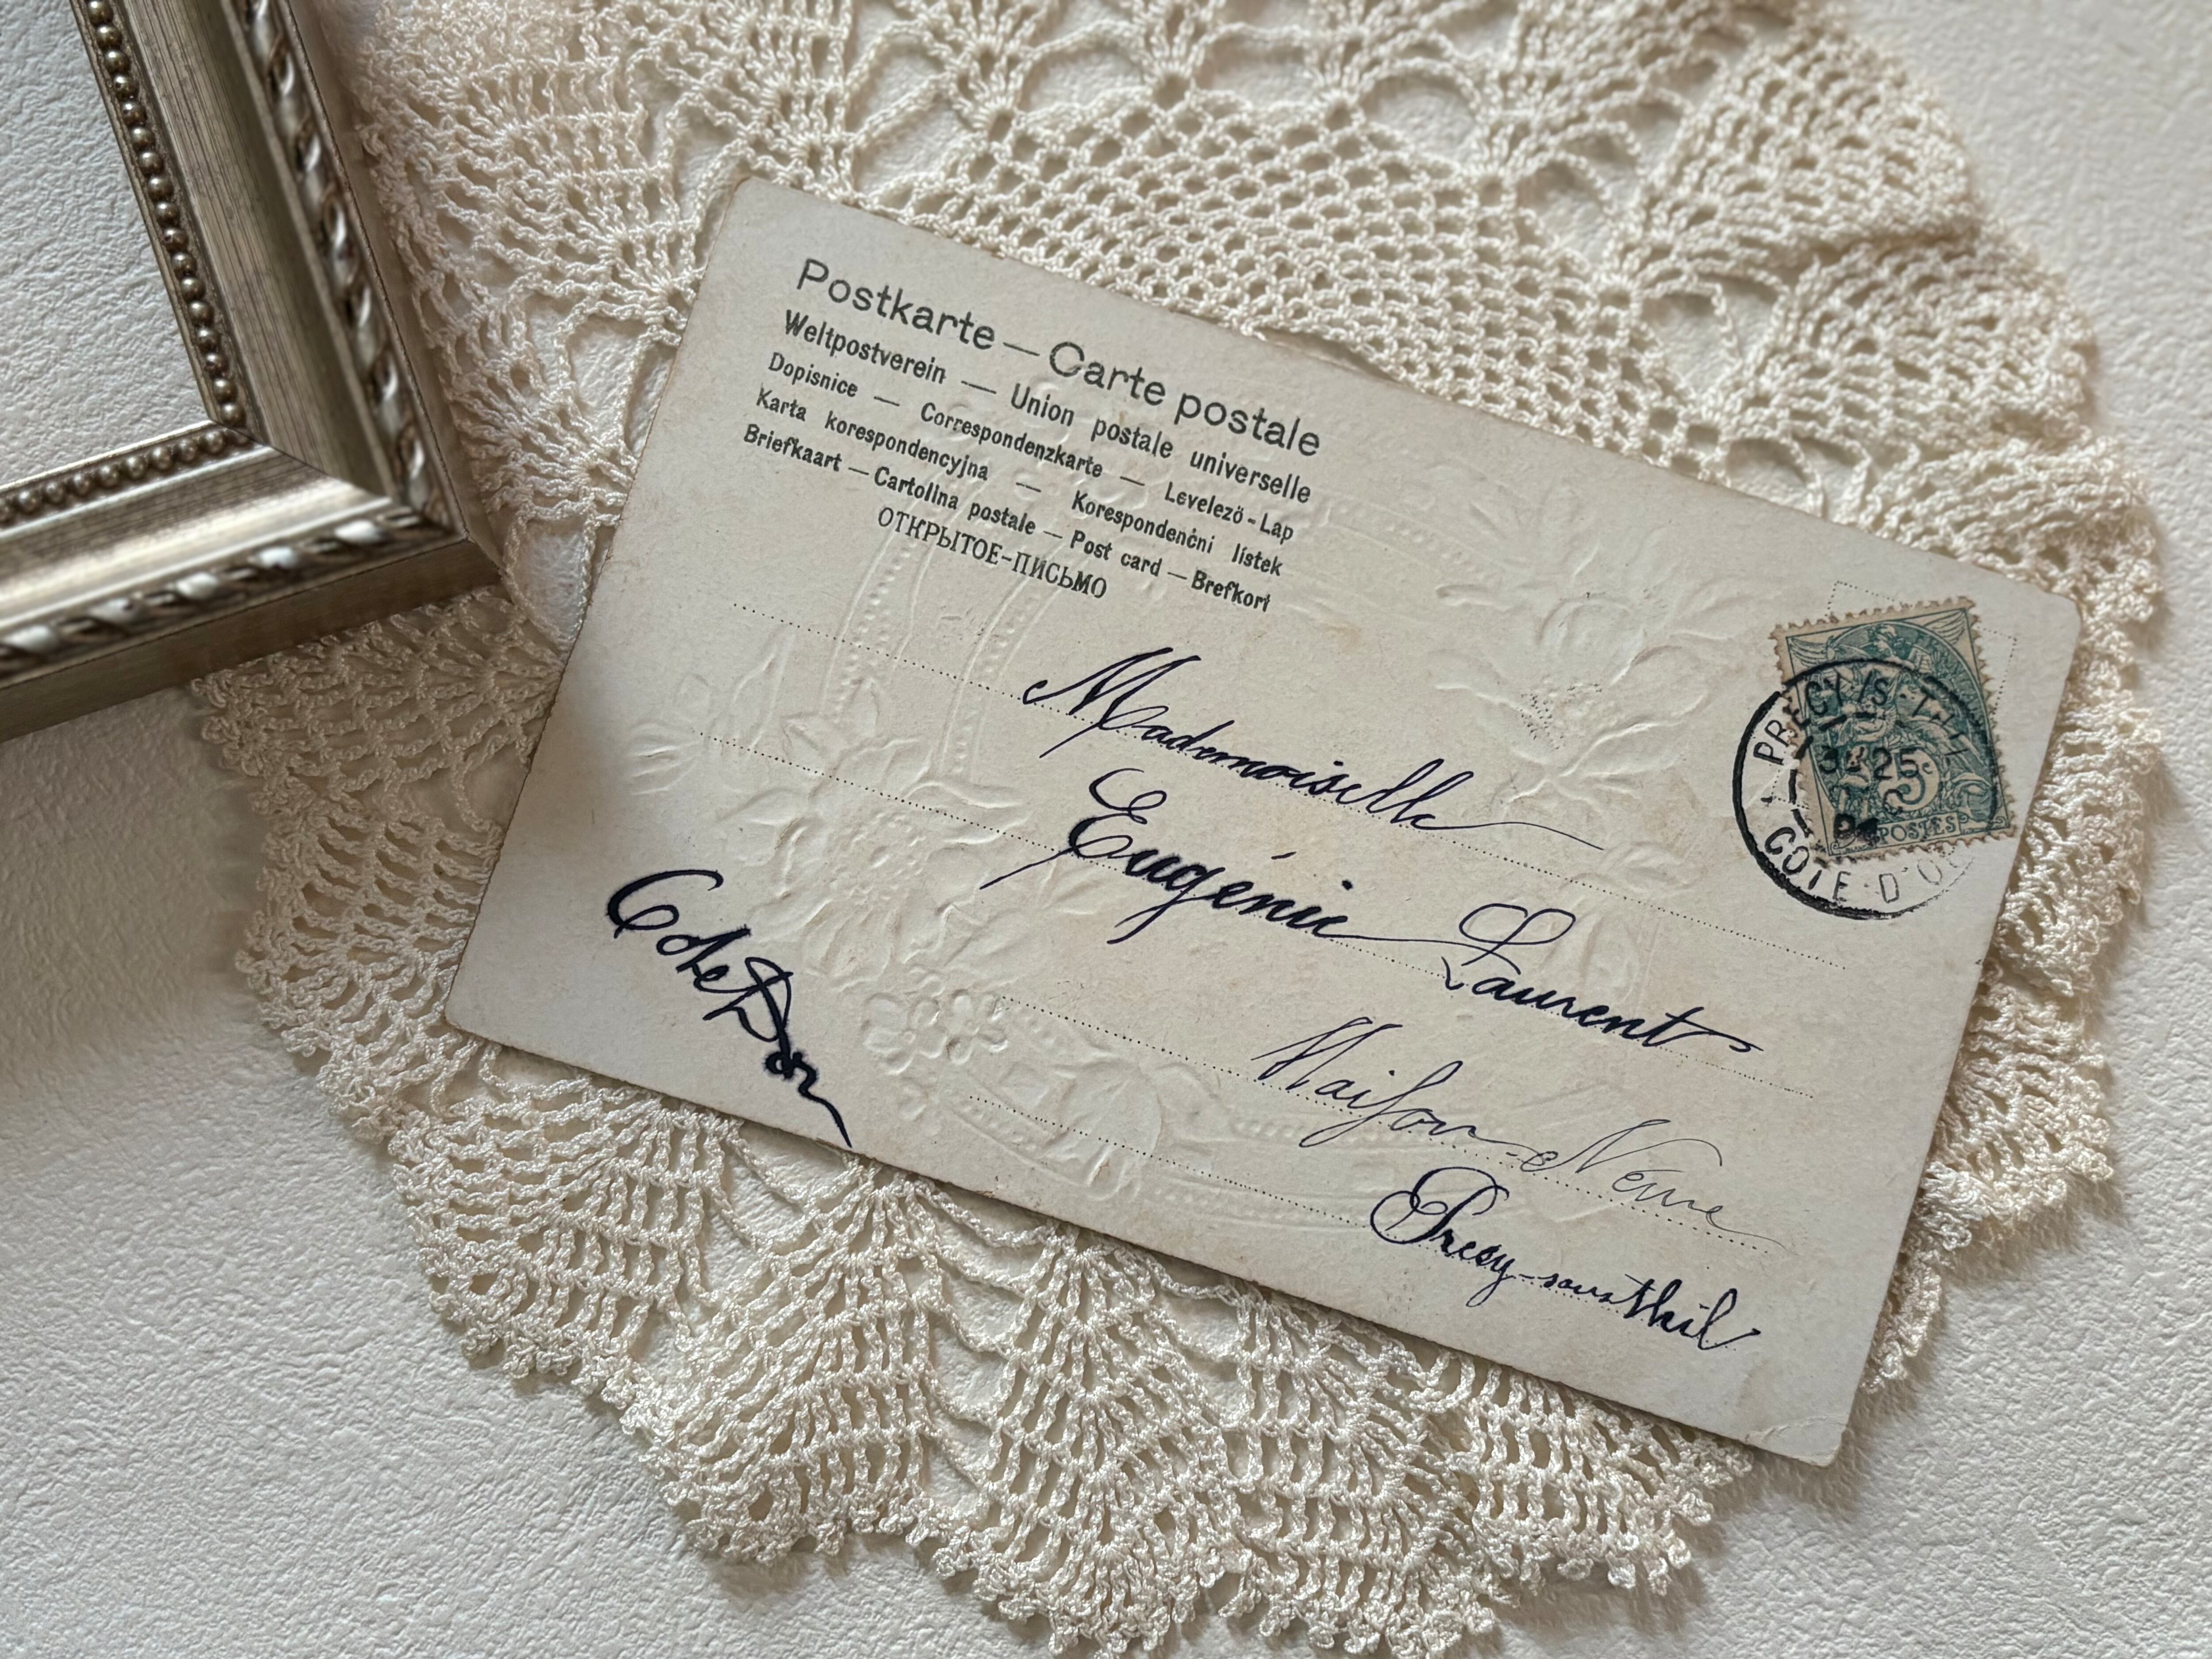 Postkarte — Carte postale
Weltpostverein — Union postale universelle
Dopisnice — Correspondenzkarte — Levelezö-Lap
Karta korespondencyjna — Korespondenčni lístek
Briefkaart — Cartolina postale — Post card — Brefkort
ОТКРЫТОЕ-ПИСЬМО
Mademoiselle
Eugénie Laurent
Maison-Neuve
Précy-sous-Thil
Cote D'or
PRECY /S THIL
25
5c
POSTES
COTE-D'OR